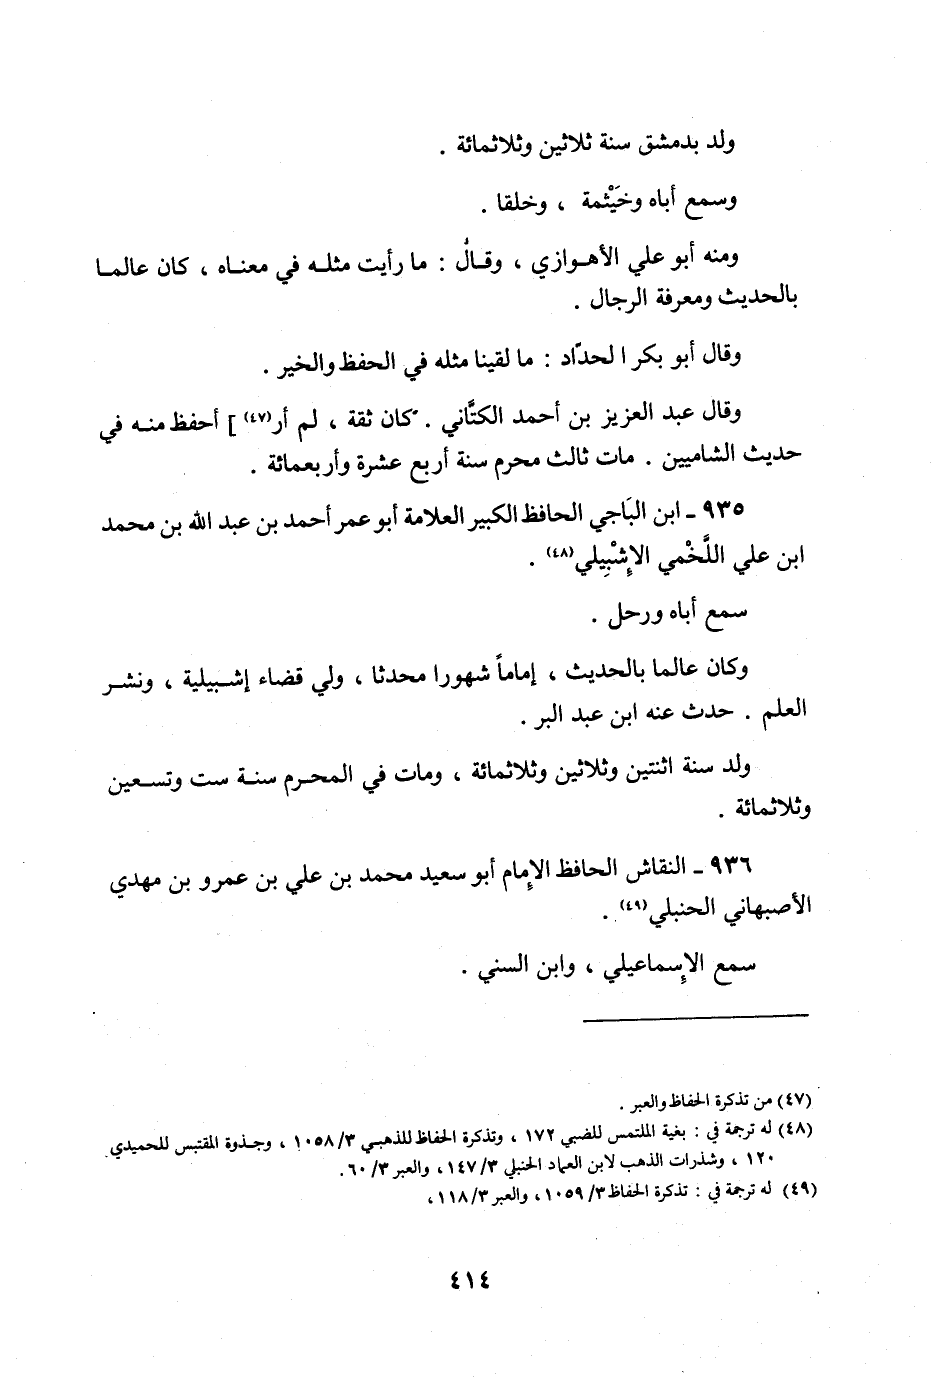 ولد بدمشق سنة ثلاثين وثلاثمائة .
وسمع أباه وخَيْثمة ، وخلقا .
ومنه أبو علي الأهـوازي ، وقـالُ : ما رأيت مثلـه في معنـاه ، كان عالمـا
بالحديث ومعرفة الرجال .
وقال أبو بكر الحدّاد : ما لقينا مثله في الحفظ والخير .
وقال عبد العزيز بن أحمد الكتَّاني . كان ثقة ، لم أر(٤٧) ] أحفظ منـه في
حديث الشاميين . مات ثالث محرم سنة أربع عشرة وأربعمائة .
٩٣٥ ـ ابن البَاجي الحافظ الكبير العلامة أبو عمر أحمد بن عبد الله بن محمد
ابن علي اللَّخْمي الإشْبِيلي(٤٨) .
سمع أباه ورحل .
وكان عالما بالحديث ، إماماً شهورا محدثا ، ولي قضاء إشـبيلية ، ونشـر
العلم . حدث عنه ابن عبد البر .
ولد سنة اثنتين وثلاثين وثلاثمائة ، ومات في المحـرم سنـة ست وتسـعين
وثلاثمائة .
٩٣٦ ـ النقاش الحافظ الإمام أبو سعيد محمد بن علي بن عمرو بن مهدي
الأصبهاني الحنبلي(٤٩) .
سمع الإسماعيلي ، وابن السني .
(٤٧) من تذكرة الحفاظ والعبر .
(٤٨) له ترجمة في : بغية الملتمس للضبي ١٧٢ ، وتذكرة الحفاظ للذهبـي ١٠٥٨/٣ ، وجـذوة المقتبس للحميدي
١٢٠ ، وشذرات الذهب لابن العماد الحنبلي ١٤٧/٣ ، والعبر ٦٠/٣ .
(٤٩) له ترجمة في : تذكرة الحفاظ ١٠٥٩/٣ ، والعبر ١١٨/٣ ،
٤١٤